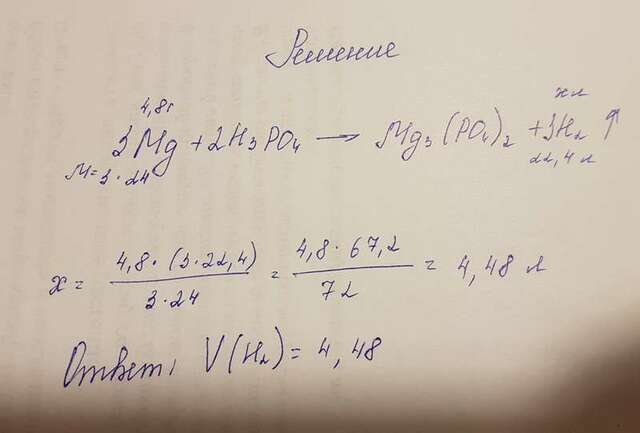 Решение
4,8г
x л
3Mg + 2H₃PO₄ → Mg₃(PO₄)₂ + 3H₂ ↑
M = 3 · 24
22,4 л
x = 4,8 · (3 · 22,4) / 3 · 24 = 4,8 · 67,2 / 72 = 4,48 л
Ответ: V(H₂) = 4,48